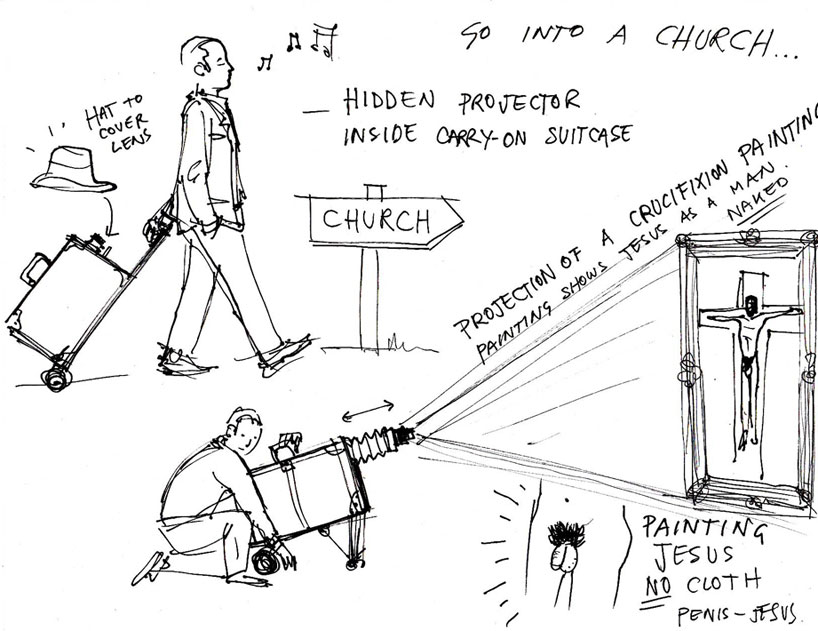 GO INTO A CHURCH...
HAT TO
COVER
LENS
— HIDDEN PROJECTOR
INSIDE CARRY-ON SUITCASE
CHURCH
PROJECTION OF A CRUCIFIXION PAINTING
PAINTING SHOWS JESUS AS A MAN.
NAKED
PAINTING
JESUS
NO CLOTH
PENIS-JESUS.